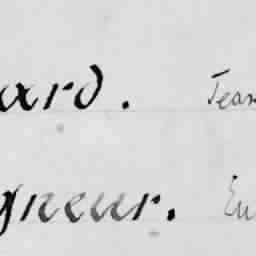 ard. Jean
gneur. Eu